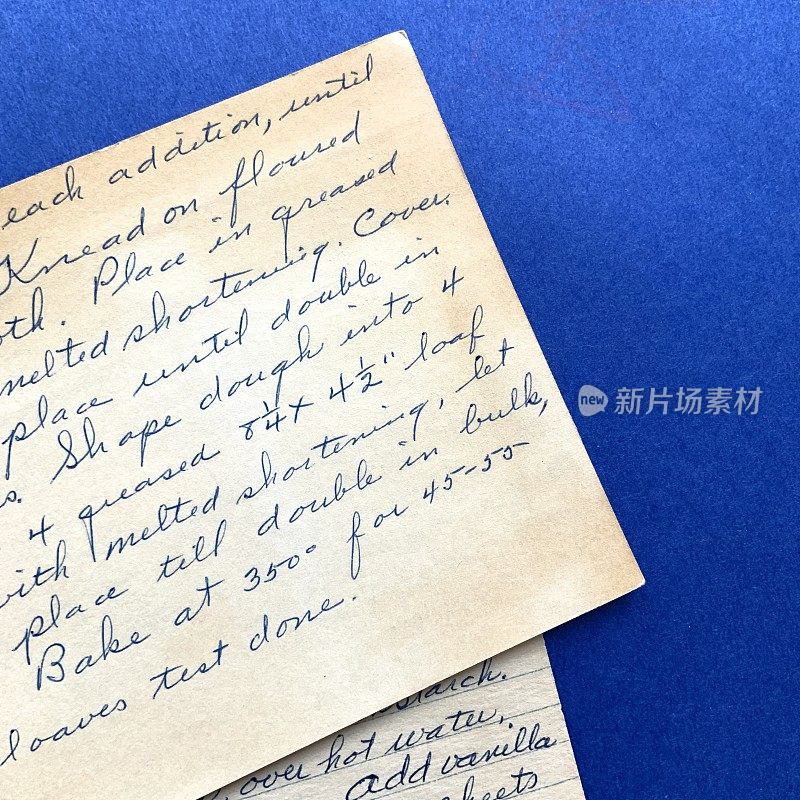 each addition, until
Knead on floured
oth. Place in greased
melted shortening. Cover.
place until double in
s. Shape dough into 4
4 greased 8¼ x 4½" loaf
with melted shortening, let
place till double in bulk,
Bake at 350° for 45-55
loaves test done.
starch.
over hot water,
add vanilla
sheets
new 新片场素材